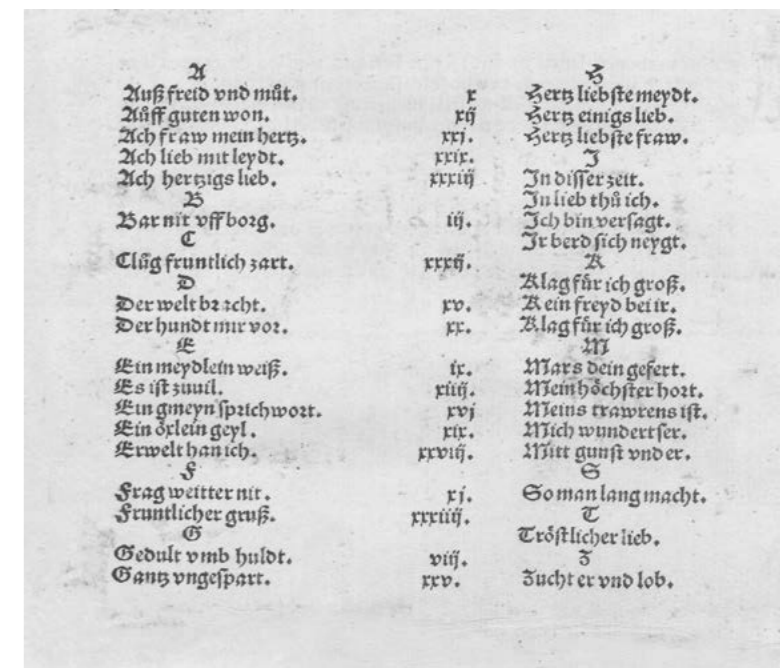 A
Auß freid vnd můt. x
Aůff guten won. xij
Ach fraw mein hertz. xxj.
Ach lieb mit leydt. xxix.
Ach hertzigs lieb. xxxiij
B
Bar nit vff borg. iij.
C
Clůg fruntlich zart. xxxij.
D
Der welt bracht. xv.
Der hundt mir vor. xx.
E
Ein meydlein weiß. ix.
Es ist zuuil. xiiij.
Ein gmeyn sprichwort. xvj
Ein örlein geyl. xix.
Erwelt han ich. xxviij.
F
Frag weitter nit. xj.
Fruntlicher gruß. xxxiiij.
G
Gedult vmb huldt. viij.
Gantz vngespart. xxv.
H
Hertz liebste meydt.
Hertz einigs lieb.
Hertz liebste fraw.
I
In disser zeit.
In lieb thů ich.
Ich bin versagt.
Ir berd sich neygt.
K
Klag für ich groß.
Kein freyd bei ir.
Klag für ich groß.
M
Mars dein gefert.
Mein höchster hort.
Meins trawrens ist.
Mich wundert ser.
Mitt gunst vnd er.
S
So man lang macht.
T
Tröstlicher lieb.
Z
Zucht er vnd lob.